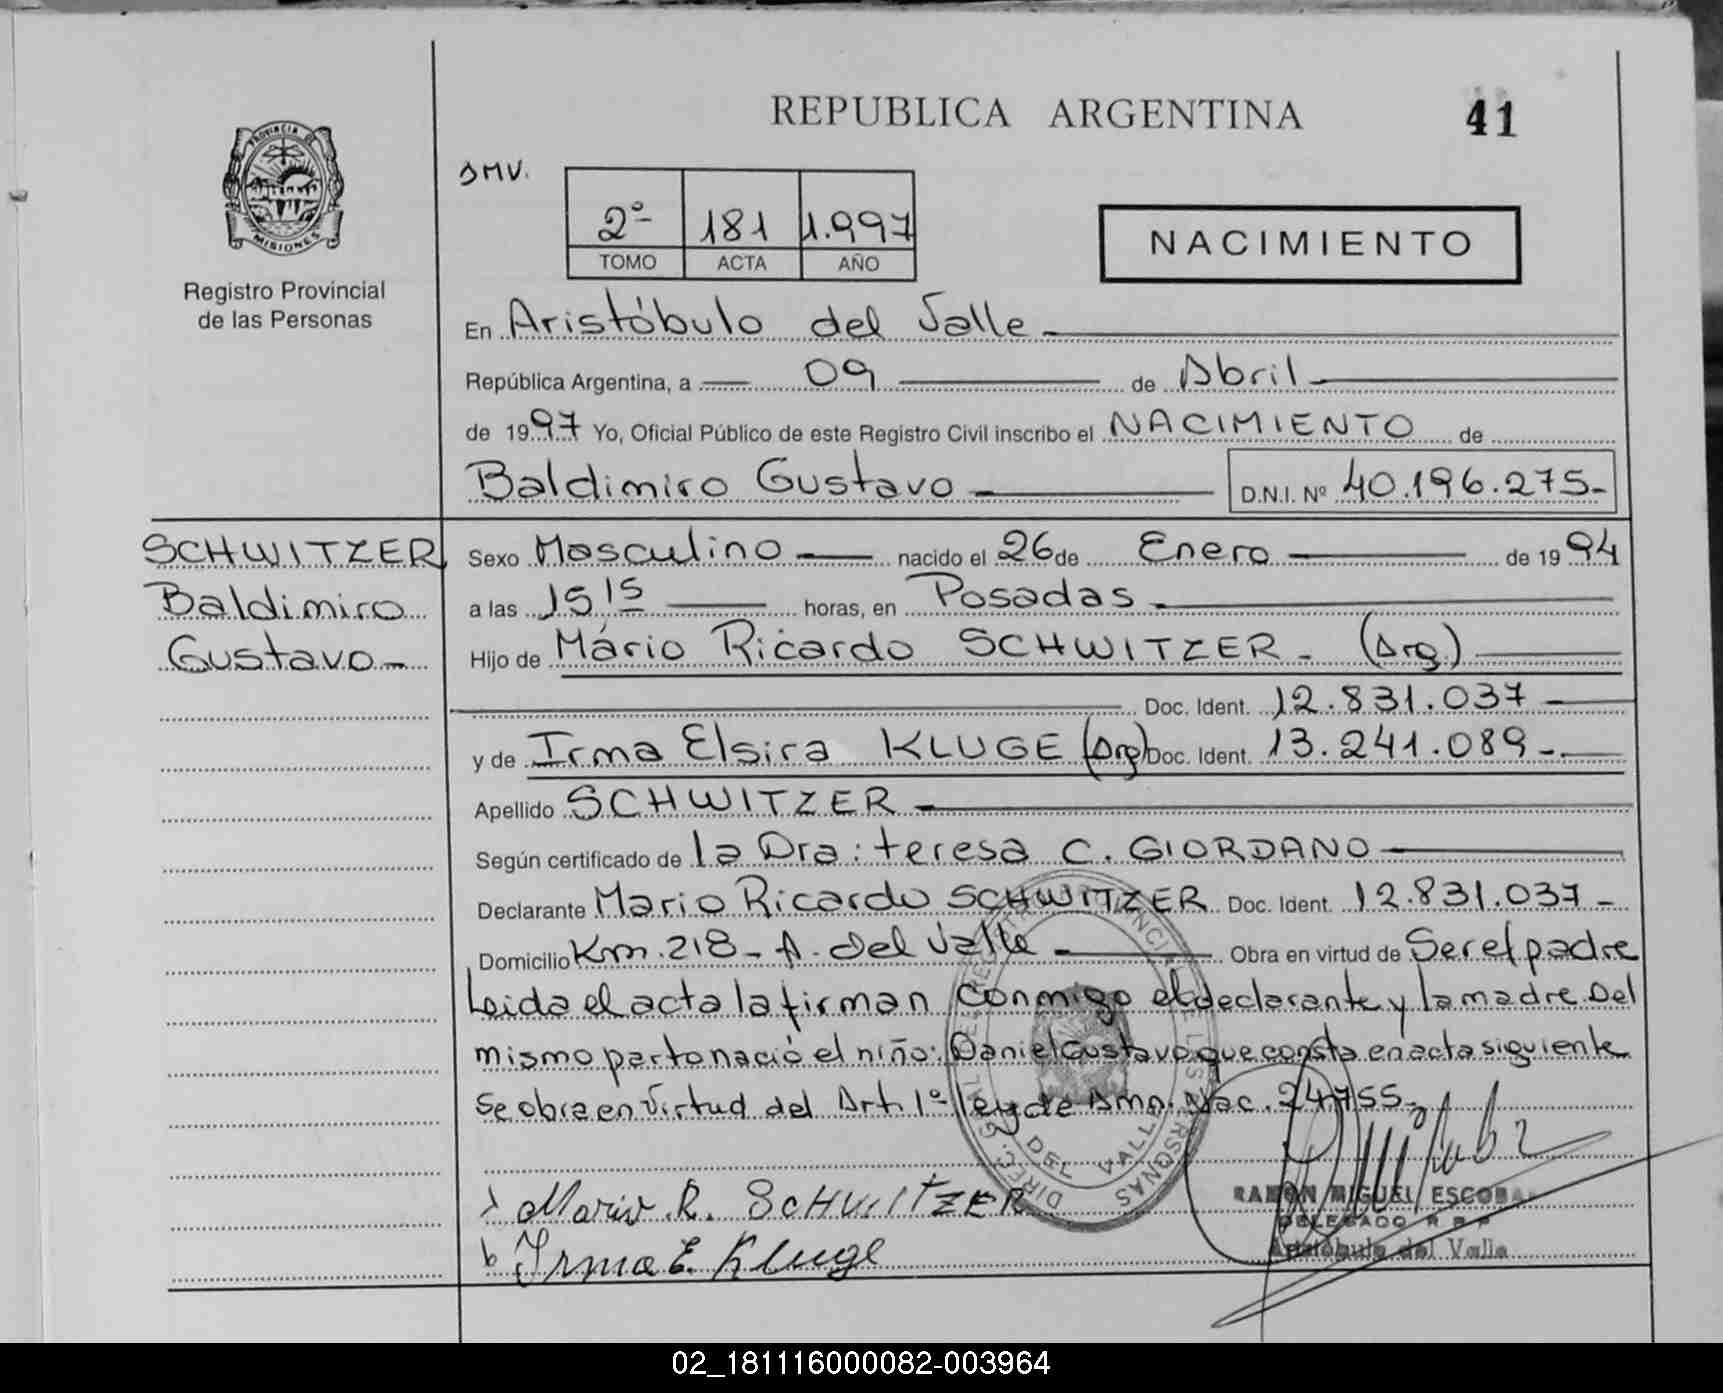 REPUBLICA ARGENTINA
41
PROVINCIA DE
MISIONES
Registro Provincial
de las Personas
SMV.
2º 181 1.997
TOMO ACTA AÑO
NACIMIENTO
En Aristóbulo del Valle
República Argentina, a 09 de Abril
de 1997 Yo, Oficial Público de este Registro Civil inscribo el NACIMIENTO de
Baldimiro Gustavo D.N.I. Nº 40.196.275-
SCHWITZER
Baldimiro
Gustavo-
Sexo Masculino nacido el 26 de Enero de 1994
a las 15 15 horas, en Posadas
Hijo de Mário Ricardo SCHWITZER - (Arg.)
Doc. Ident. 12.831.037
y de Irma Elsira KLUGE (Arg) Doc. Ident. 13.241.089-
Apellido SCHWITZER
Según certificado de la Dra: teresa C. GIORDANO
Declarante Mario Ricardo SCHWITZER Doc. Ident. 12.831.037-
Domicilio Km. 218- A. del Valle Obra en virtud de Ser el padre
Leida el acta la firman conmigo el declarante y la madre. Del
mismo parto nació el niño: Daniel Gustavo que consta en acta siguiente
Se obra en virtud del Art. 1º ley de Amn. Nac. 24755-
DEL VALLE
Mario R. SCHWITZER
Irma E. Kluge
RAMON MIGUEL ESCOBAR
DELEGADO R P P
Aristóbulo del Valle
02_181116000082-003964